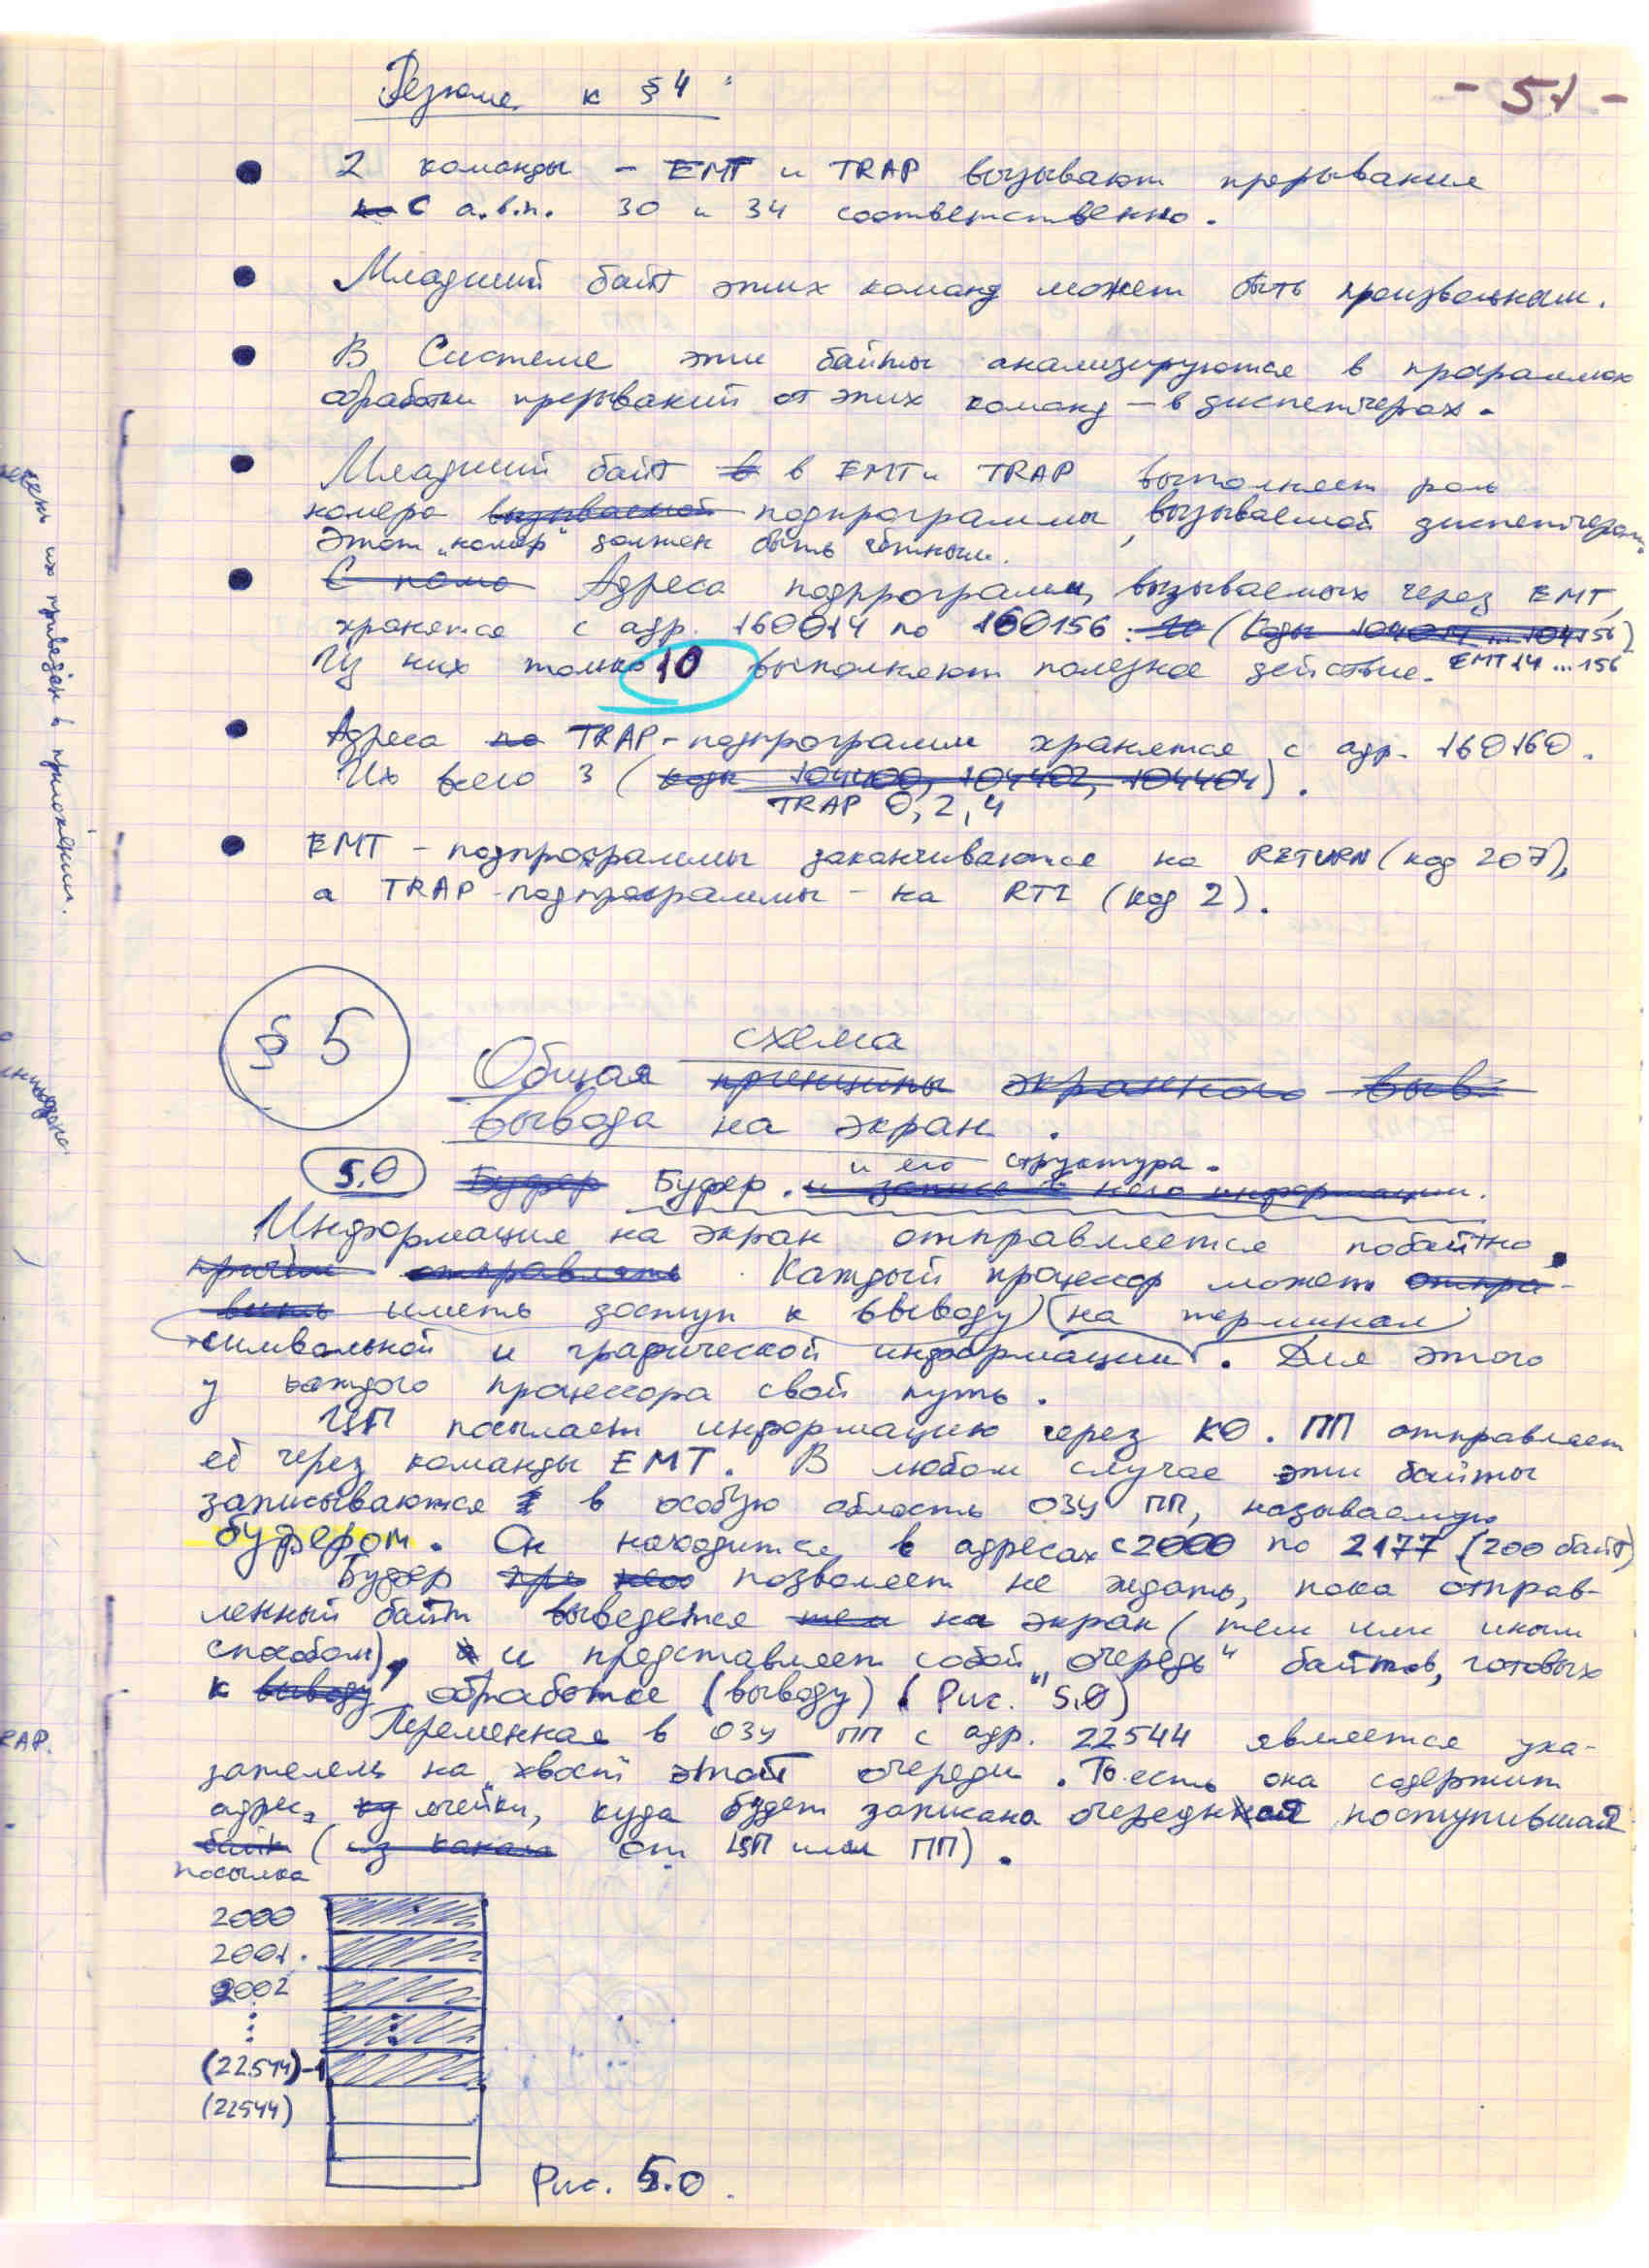 - 51 -
Резюме к §4:
2 команды - EMT и TRAP вызывают прерывания
с а.в.п. 30 и 34 соответственно.
Младший байт этих команд может быть произвольным.
В Системе эти байты анализируются в программах
обработки прерываний от этих команд - в диспетчерах.
Младший байт в EMT и TRAP выполняет роль
номера вызываемой подпрограммы, вызываемой диспетчером.
Этот „номер“ должен быть чётным.
С помо Адреса подпрограмм, вызываемых через EMT,
хранятся с адр. 160014 по 160156. (Коды 104014...104156)
EMT 14...156
Из них только 10 выполняют полезное действие.
Адреса по TRAP-подпрограмм хранятся с адр. 160160.
Их всего 3 (коды 104400, 104402, 104404).
TRAP 0, 2, 4
EMT - подпрограммы заканчиваются на RETURN (код 207),
а TRAP-подпрограммы - на RTI (код 2).
§ 5
схема
Общая принципы экранного выв-
вывода на экран.
и его структура.
5.0 Буфер Буфер. и запись в него информации.
Информация на экран отправляется побайтно.
причём отправлять. Каждый процессор может отпра-
вить иметь доступ к выводу (на терминал)
символьной и графической информации. Для этого
у каждого процессора свой путь.
ЦП посылает информацию через К0. ПП отправляет
её через команды EMT. В любом случае эти байты
записываются в особую область ОЗУ ПП, называемую
буфером. Он находится в адресах с 2000 по 2177 (200 байт)
Буфер позволяет не ждать, пока отправ-
ленный байт выведется на экран (тем или иным
способом), и представляет собой „очередь“ байтов, готовых
к выводу обработке (выводу) (Рис. 5.0)
Переменная в ОЗУ ПП с адр. 22544 является ука-
зателем на „хвост“ этой очереди. То есть она содержит
адрес ячейки, куда будет записана очередная поступившая
байт (из канала от ЦП или ПП).
посылка
2000
2001.
2002
⋮
(22544)-1
(22544)
Рис. 5.0.
их приведён в приложении.
RAP.